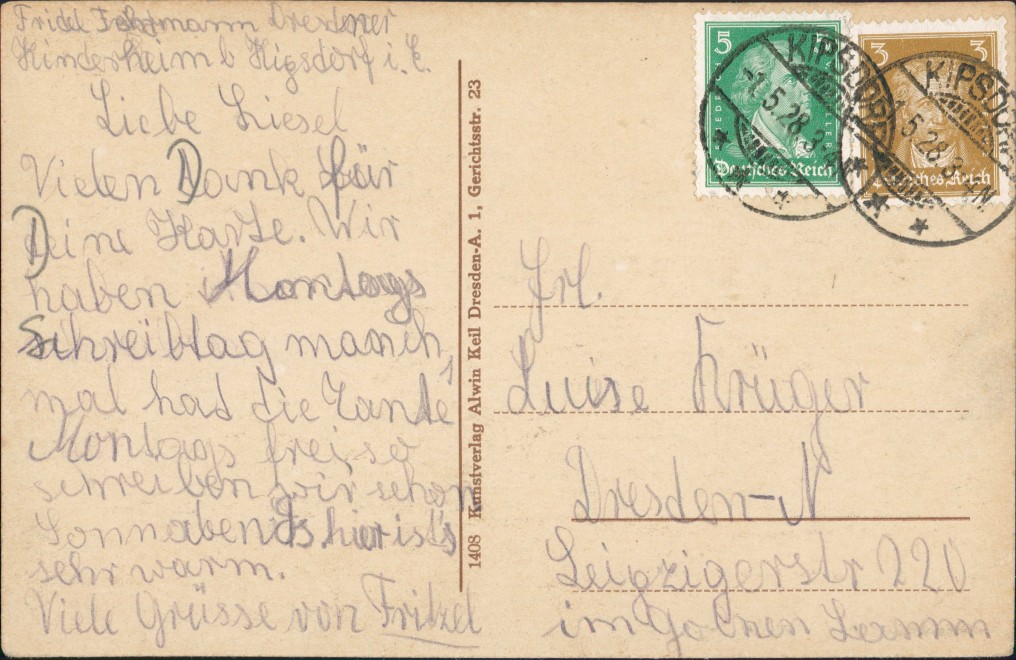 Fridel Fohrmann Dresdner
Kinderheim b Kigsdorf i. E.
Liebe Liesel
Vielen Dank für
Deine Karte. Wir
haben Montags
Schreibtag manch
mal had die Tante
Montags frei, so
schreiben wir schon
Sonnabends. hier ist's
sehr warm.
Viele Grüsse von Fritzel
1408 Kunstverlag Alwin Keil Dresden-A. 1, Gerichtsstr. 23
5
Deutsches Reich
3
Deutsches Reich
KIPSDORF
1.5.28.3-4N
KIPSDORF
1.5.28.3-4N
Frl.
Luise Krüger
Dresden-N
Leipzigerstr 220
im Golnen Lamm